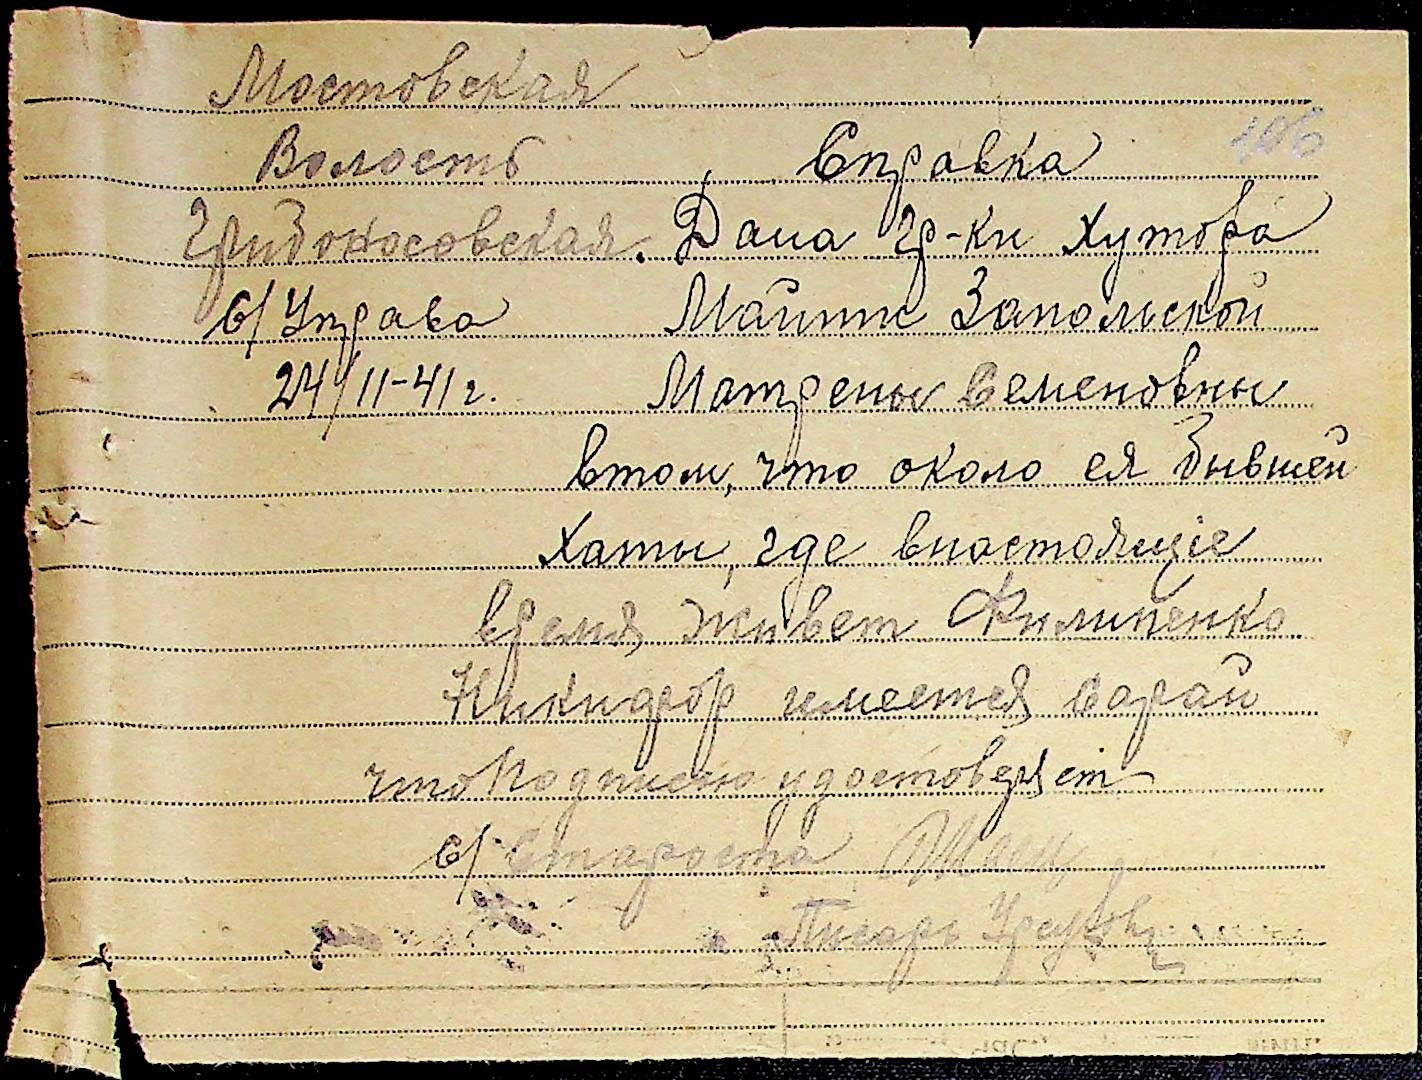 Мостовская
Волость
Грибоносовская.
с/Управа
24/11-41 г.
106
Справка
Дана гр-ки Хутора
Майтис Запольской
Матрены Семеновны
втом, что около ея бывшей
Хаты, где внастоящіе
время живет Филипенко
Никифор имеется сарай
что подписью удостоверяет
с/Староста
Писарь